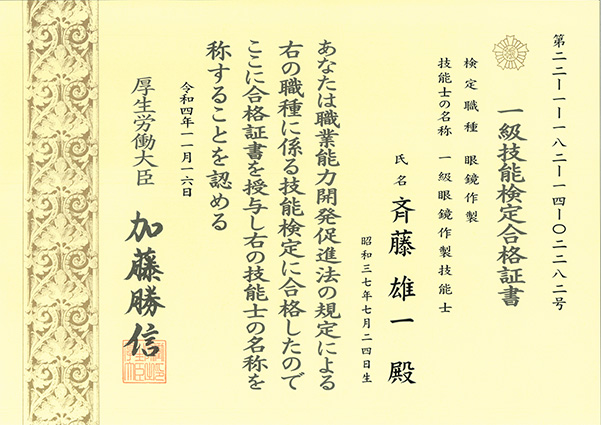 第二二―一―一八二―一四―〇二二八二号
一級技能検定合格証書
検定職種 眼鏡作製
技能士の名称 一級眼鏡作製技能士
氏名 斉藤雄一 殿
昭和三七年七月二四日生
あなたは職業能力開発促進法の規定による
右の職種に係る技能検定に合格したので
ここに合格証書を授与し右の技能士の名称を
称することを認める
令和四年一一月一六日
厚生労働大臣 加藤勝信